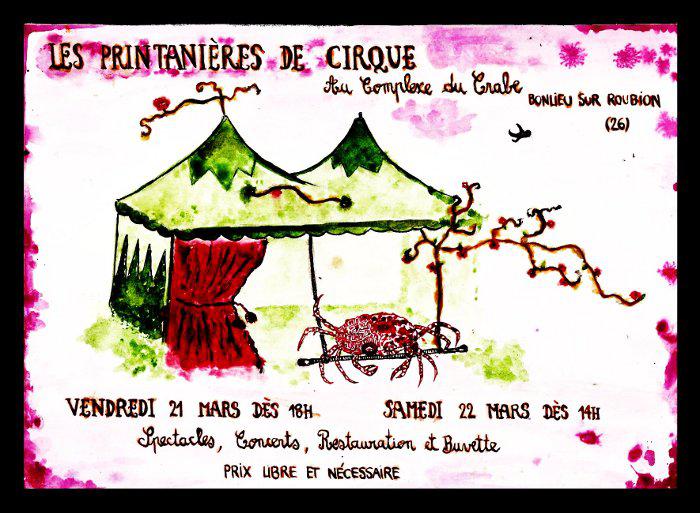 LES PRINTANIÈRES DE CIRQUE
Au Complexe du Crabe
BONLIEU SUR ROUBION
(26)
VENDREDI 21 MARS DÈS 18H
SAMEDI 22 MARS DÈS 14H
Spectacles, Concerts, Restauration et Buvette
PRIX LIBRE ET NÉCESSAIRE